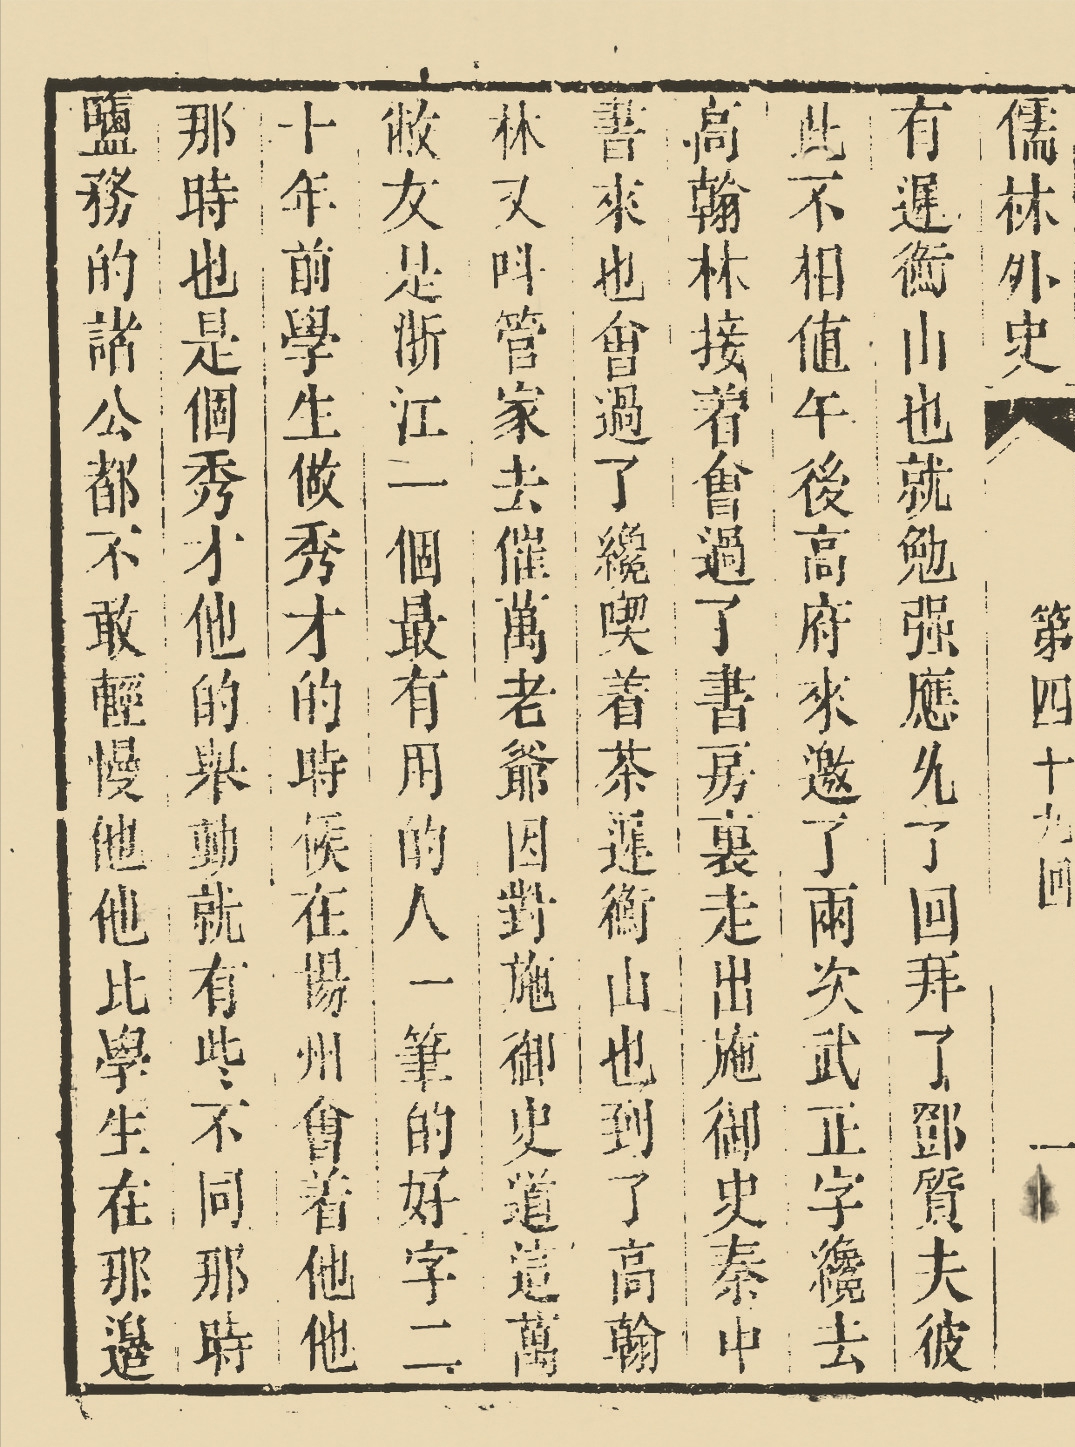 儒林外史
第四十九回
一
有遲衡山也就勉强應允了回拜了鄧質夫彼
此不相値午後高府來邀了兩次武正字纔去
高翰林接着會過了書房裏走出施御史秦中
書來也會過了纔喫着茶遲衡山也到了高翰
林又叫管家去催萬老爺因對施御史道這萬
敝友是浙江一個最有用的人一筆的好字二
十年前學生做秀才的時候在揚州會着他他
那時也是個秀才他的舉動就有些不同那時
鹽務的諸公都不敢輕慢他他比學生在那邉